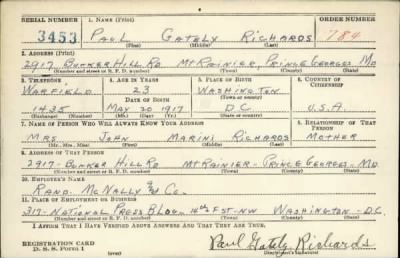 SERIAL NUMBER 1. NAME (Print) ORDER NUMBER
3453 PAUL GATELY RICHARDS 784
(First) (Middle) (Last)
2. ADDRESS (Print)
2917 BUNKER HILL RD MT RAINIER, PRINCE GEORGES MD
(Number and street or R. F. D. number) (Town) (County) (State)
3. TELEPHONE 4. AGE IN YEARS 5. PLACE OF BIRTH 6. COUNTRY OF CITIZENSHIP
WARFIELD 23 WASHINGTON
DATE OF BIRTH (Town or county)
1435 MAY 20 1917 D.C. U.S.A.
(Exchange) (Number) (Mo.) (Day) (Yr.) (State or country)
7. NAME OF PERSON WHO WILL ALWAYS KNOW YOUR ADDRESS 8. RELATIONSHIP OF THAT PERSON
MRS. JOHN MARINI RICHARDS MOTHER
(Mr., Mrs., Miss) (First) (Middle) (Last)
9. ADDRESS OF THAT PERSON
2917-BUNKER HILL RD MT RAINIER-PRINCE GEORGES-MD
(Number and street or R. F. D. number) (Town) (County) (State)
10. EMPLOYER'S NAME
RAND MCNALLY & CO.
11. PLACE OF EMPLOYMENT OR BUSINESS
317-NATIONAL PRESS BLDG-14th & F ST-NW WASHINGTON-D.C.
(Number and street or R. F. D. number) (Town) (County) (State)
I AFFIRM THAT I HAVE VERIFIED ABOVE ANSWERS AND THAT THEY ARE TRUE.
REGISTRATION CARD
D. S. S. Form 1 (over) Paul Gately Richards
(Registrant's signature)